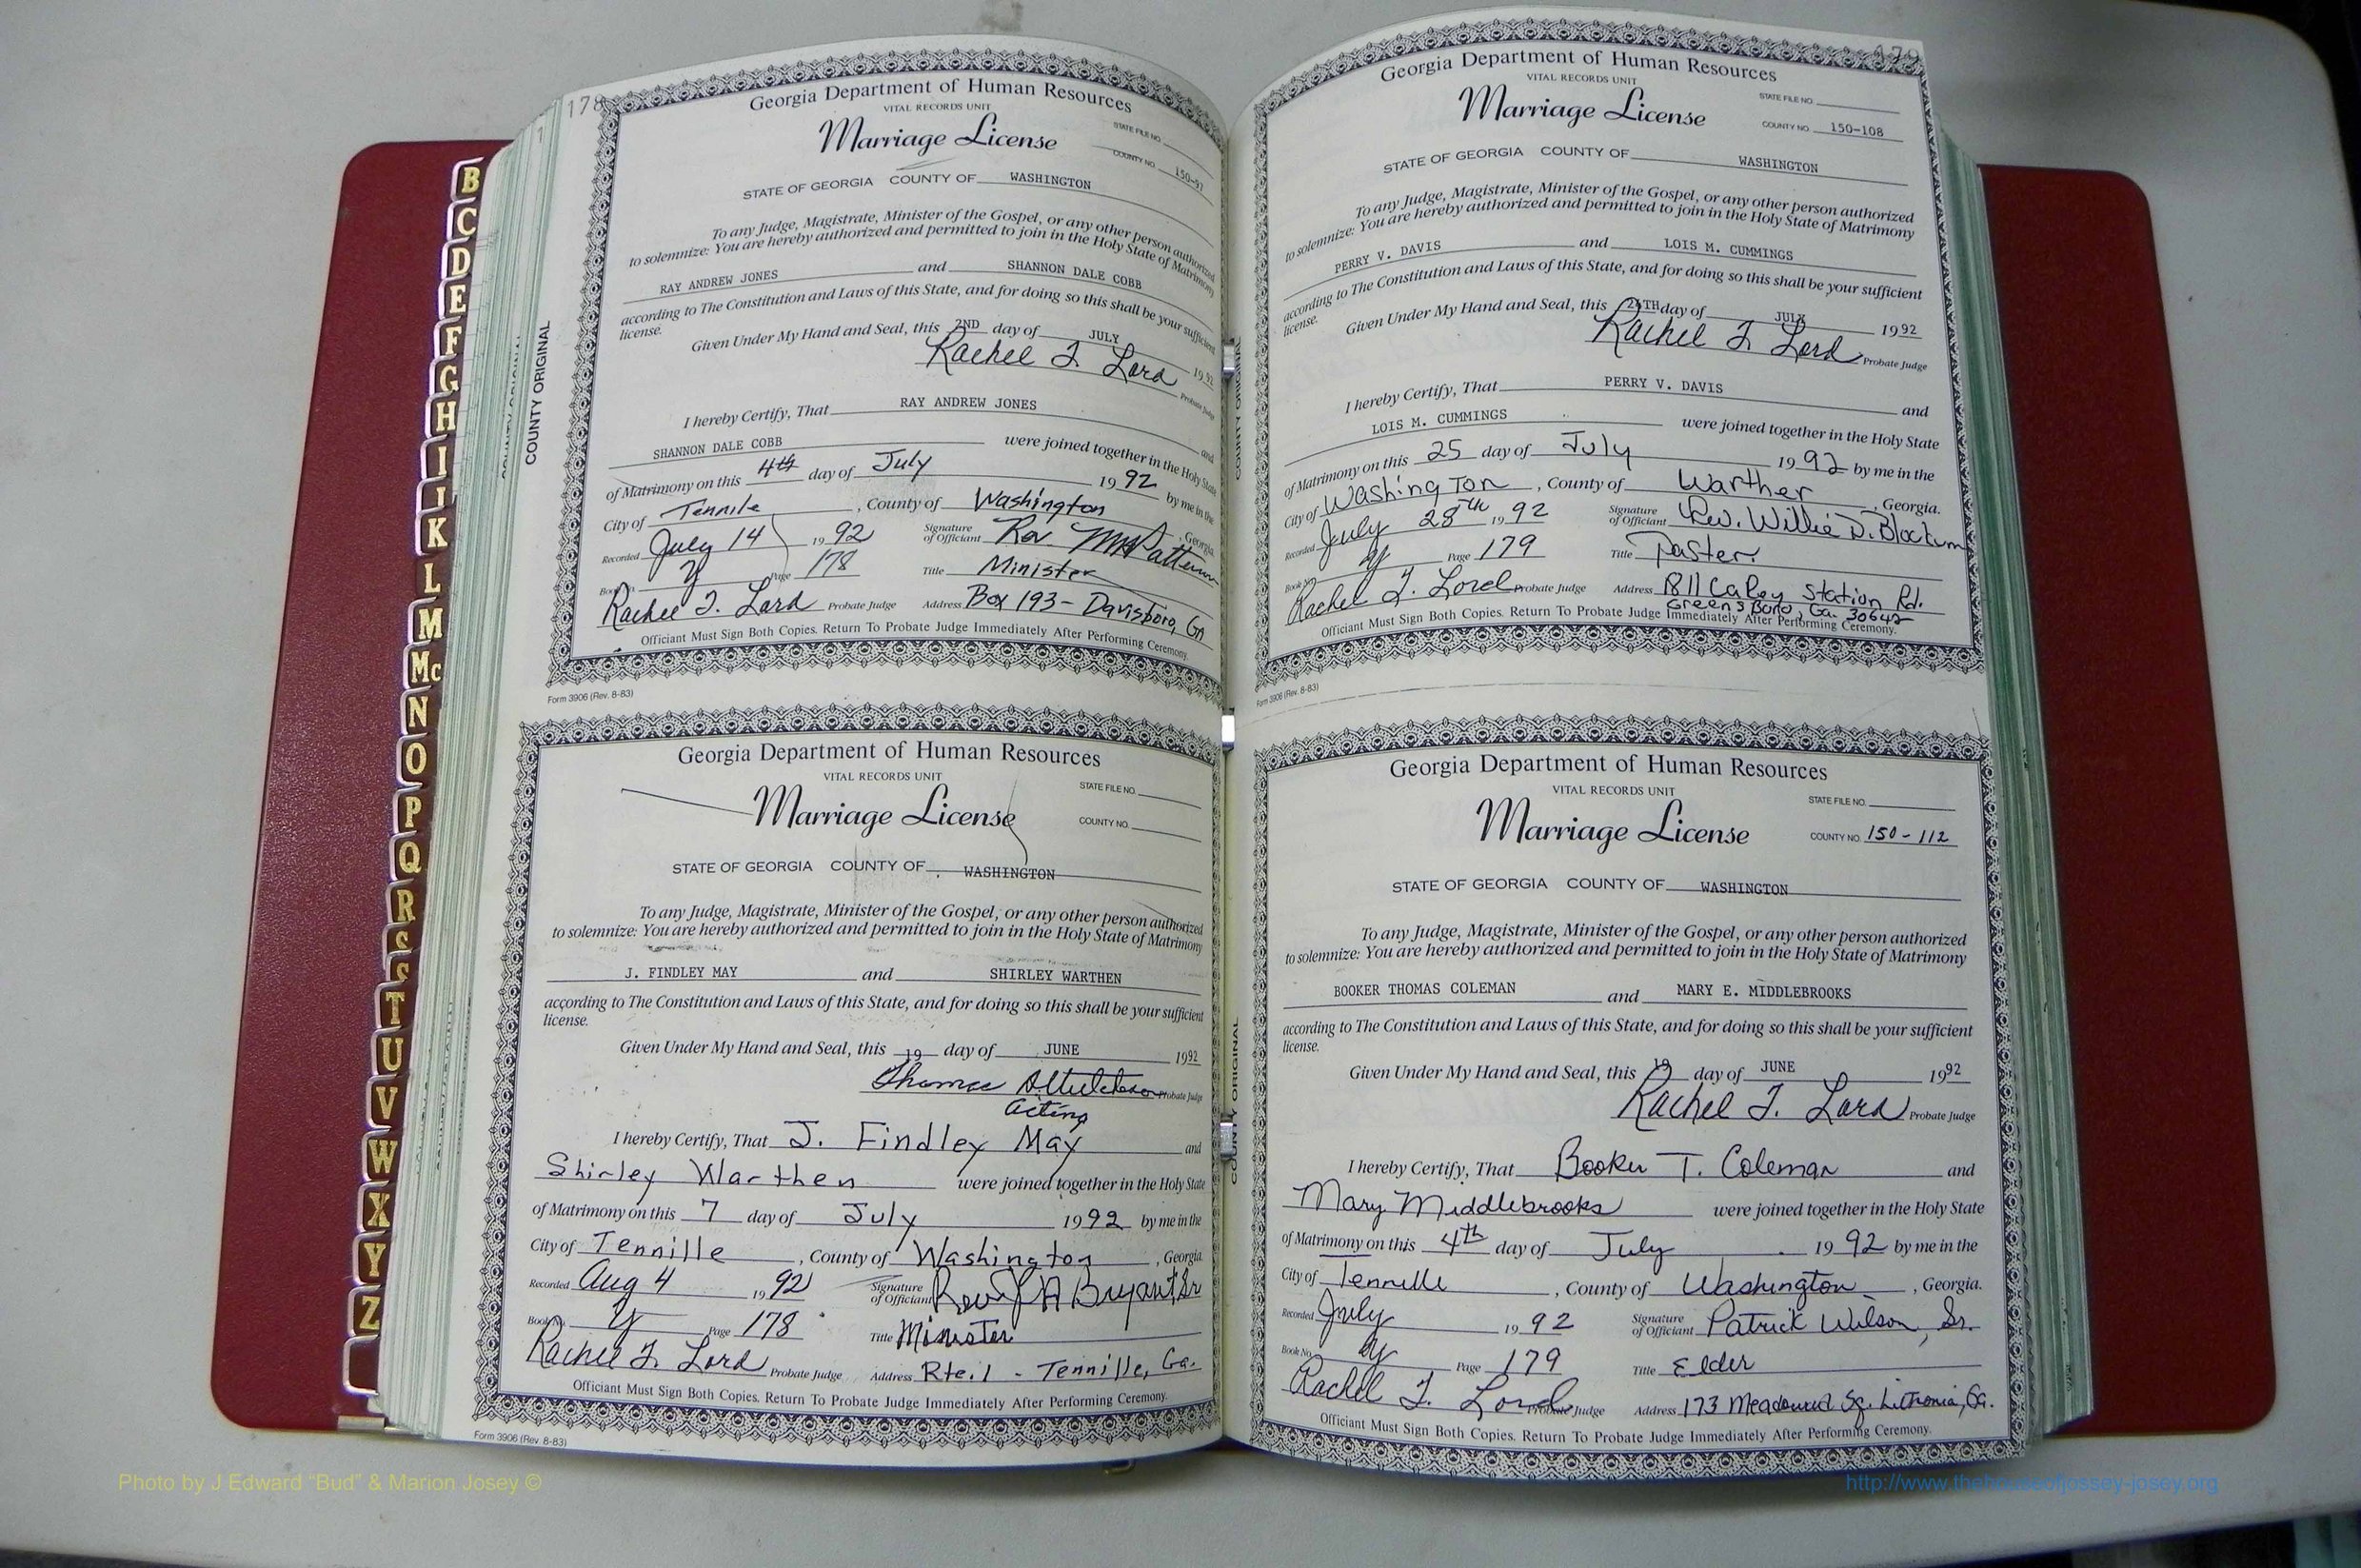 178
Georgia Department of Human Resources
VITAL RECORDS UNIT
Marriage License
STATE FILE NO.
COUNTY NO. 150-97
STATE OF GEORGIA COUNTY OF WASHINGTON
To any Judge, Magistrate, Minister of the Gospel, or any other person authorized
to solemnize: You are hereby authorized and permitted to join in the Holy State of Matrimony
RAY ANDREW JONES and SHANNON DALE COBB
according to The Constitution and Laws of this State, and for doing so this shall be your sufficient
license.
Given Under My Hand and Seal, this 2ND day of JULY 1992
Rachel J. Lord Probate Judge
I hereby Certify, That RAY ANDREW JONES and
SHANNON DALE COBB were joined together in the Holy State
of Matrimony on this 4th day of July 1992 by me in the
City of Tennile, County of Washington, Georgia.
Recorded July 14 1992 Signature of Officiant Rev.
Book No. Y Page 178 Title Minister
Rachel J. Lord Probate Judge Address Box 193 - Davisboro, GA
Officiant Must Sign Both Copies. Return To Probate Judge Immediately After Performing Ceremony.
Form 3906 (Rev. 8-83)
COUNTY ORIGINAL
Georgia Department of Human Resources
VITAL RECORDS UNIT
Marriage License
STATE FILE NO.
COUNTY NO.
STATE OF GEORGIA COUNTY OF WASHINGTON
To any Judge, Magistrate, Minister of the Gospel, or any other person authorized
to solemnize: You are hereby authorized and permitted to join in the Holy State of Matrimony
J. FINDLEY MAY and SHIRLEY WARTHEN
according to The Constitution and Laws of this State, and for doing so this shall be your sufficient
license.
Given Under My Hand and Seal, this 19 day of JUNE 1992
Probate Judge
acting
I hereby Certify, That J. Findley May and
Shirley Warthen were joined together in the Holy State
of Matrimony on this 7 day of July 1992 by me in the
City of Tennille, County of Washington, Georgia
Recorded Aug 4 1992 Signature of Officiant Rev Bryant Sr
Book No. Y Page 178 Title Minister
Rachel J. Lord Probate Judge Address Rte. 1 - Tennille, Ga.
Officiant Must Sign Both Copies. Return To Probate Judge Immediately After Performing Ceremony.
Form 3906 (Rev. 8-83)
179
Georgia Department of Human Resources
VITAL RECORDS UNIT
Marriage License
STATE FILE NO.
COUNTY NO. 150-108
STATE OF GEORGIA COUNTY OF WASHINGTON
To any Judge, Magistrate, Minister of the Gospel, or any other person authorized
to solemnize: You are hereby authorized and permitted to join in the Holy State of Matrimony
PERRY V. DAVIS and LOIS M. CUMMINGS
according to The Constitution and Laws of this State, and for doing so this shall be your sufficient
license.
Given Under My Hand and Seal, this 24TH day of JULY 1992
Rachel J. Lord Probate Judge
I hereby Certify, That PERRY V. DAVIS and
LOIS M. CUMMINGS were joined together in the Holy State
of Matrimony on this 25 day of July 1992 by me in the
City of Washington, County of Warther, Georgia.
Recorded July 28th 1992 Signature of Officiant Rev. Willie D. Blockum
Book No. Y Page 179 Title Paster.
Rachel J. Lord Probate Judge Address 1811 Carey Station Rd.
Greensboro, Ga. 30642
Officiant Must Sign Both Copies. Return To Probate Judge Immediately After Performing Ceremony.
Form 3906 (Rev. 8-83)
COUNTY ORIGINAL
Georgia Department of Human Resources
VITAL RECORDS UNIT
Marriage License
STATE FILE NO.
COUNTY NO. 150-112
STATE OF GEORGIA COUNTY OF WASHINGTON
To any Judge, Magistrate, Minister of the Gospel, or any other person authorized
to solemnize: You are hereby authorized and permitted to join in the Holy State of Matrimony
BOOKER THOMAS COLEMAN and MARY E. MIDDLEBROOKS
according to The Constitution and Laws of this State, and for doing so this shall be your sufficient
license.
Given Under My Hand and Seal, this 19 day of JUNE 1992
Rachel J. Lord Probate Judge
I hereby Certify, That Booker T. Coleman and
Mary Middlebrooks were joined together in the Holy State
of Matrimony on this 4th day of July 1992 by me in the
City of Tennille, County of Washington, Georgia.
Recorded July 1992 Signature of Officiant Patrick Wilson, Sr.
Book No. Y Page 179 Title Elder
Rachel J. Lord Probate Judge Address 173 Meadowood Sq. Lithonia, Ga.
Officiant Must Sign Both Copies. Return To Probate Judge Immediately After Performing Ceremony.
COUNTY ORIGINAL
B
C
D
E
F
G
H
I
J
K
L
M
Mc
N
O
P
Q
R
S
S
T
U
V
W
X
Y
Z
Photo by J Edward “Bud” & Marion Josey ©
http://www.thehouseofjossey-josey.org